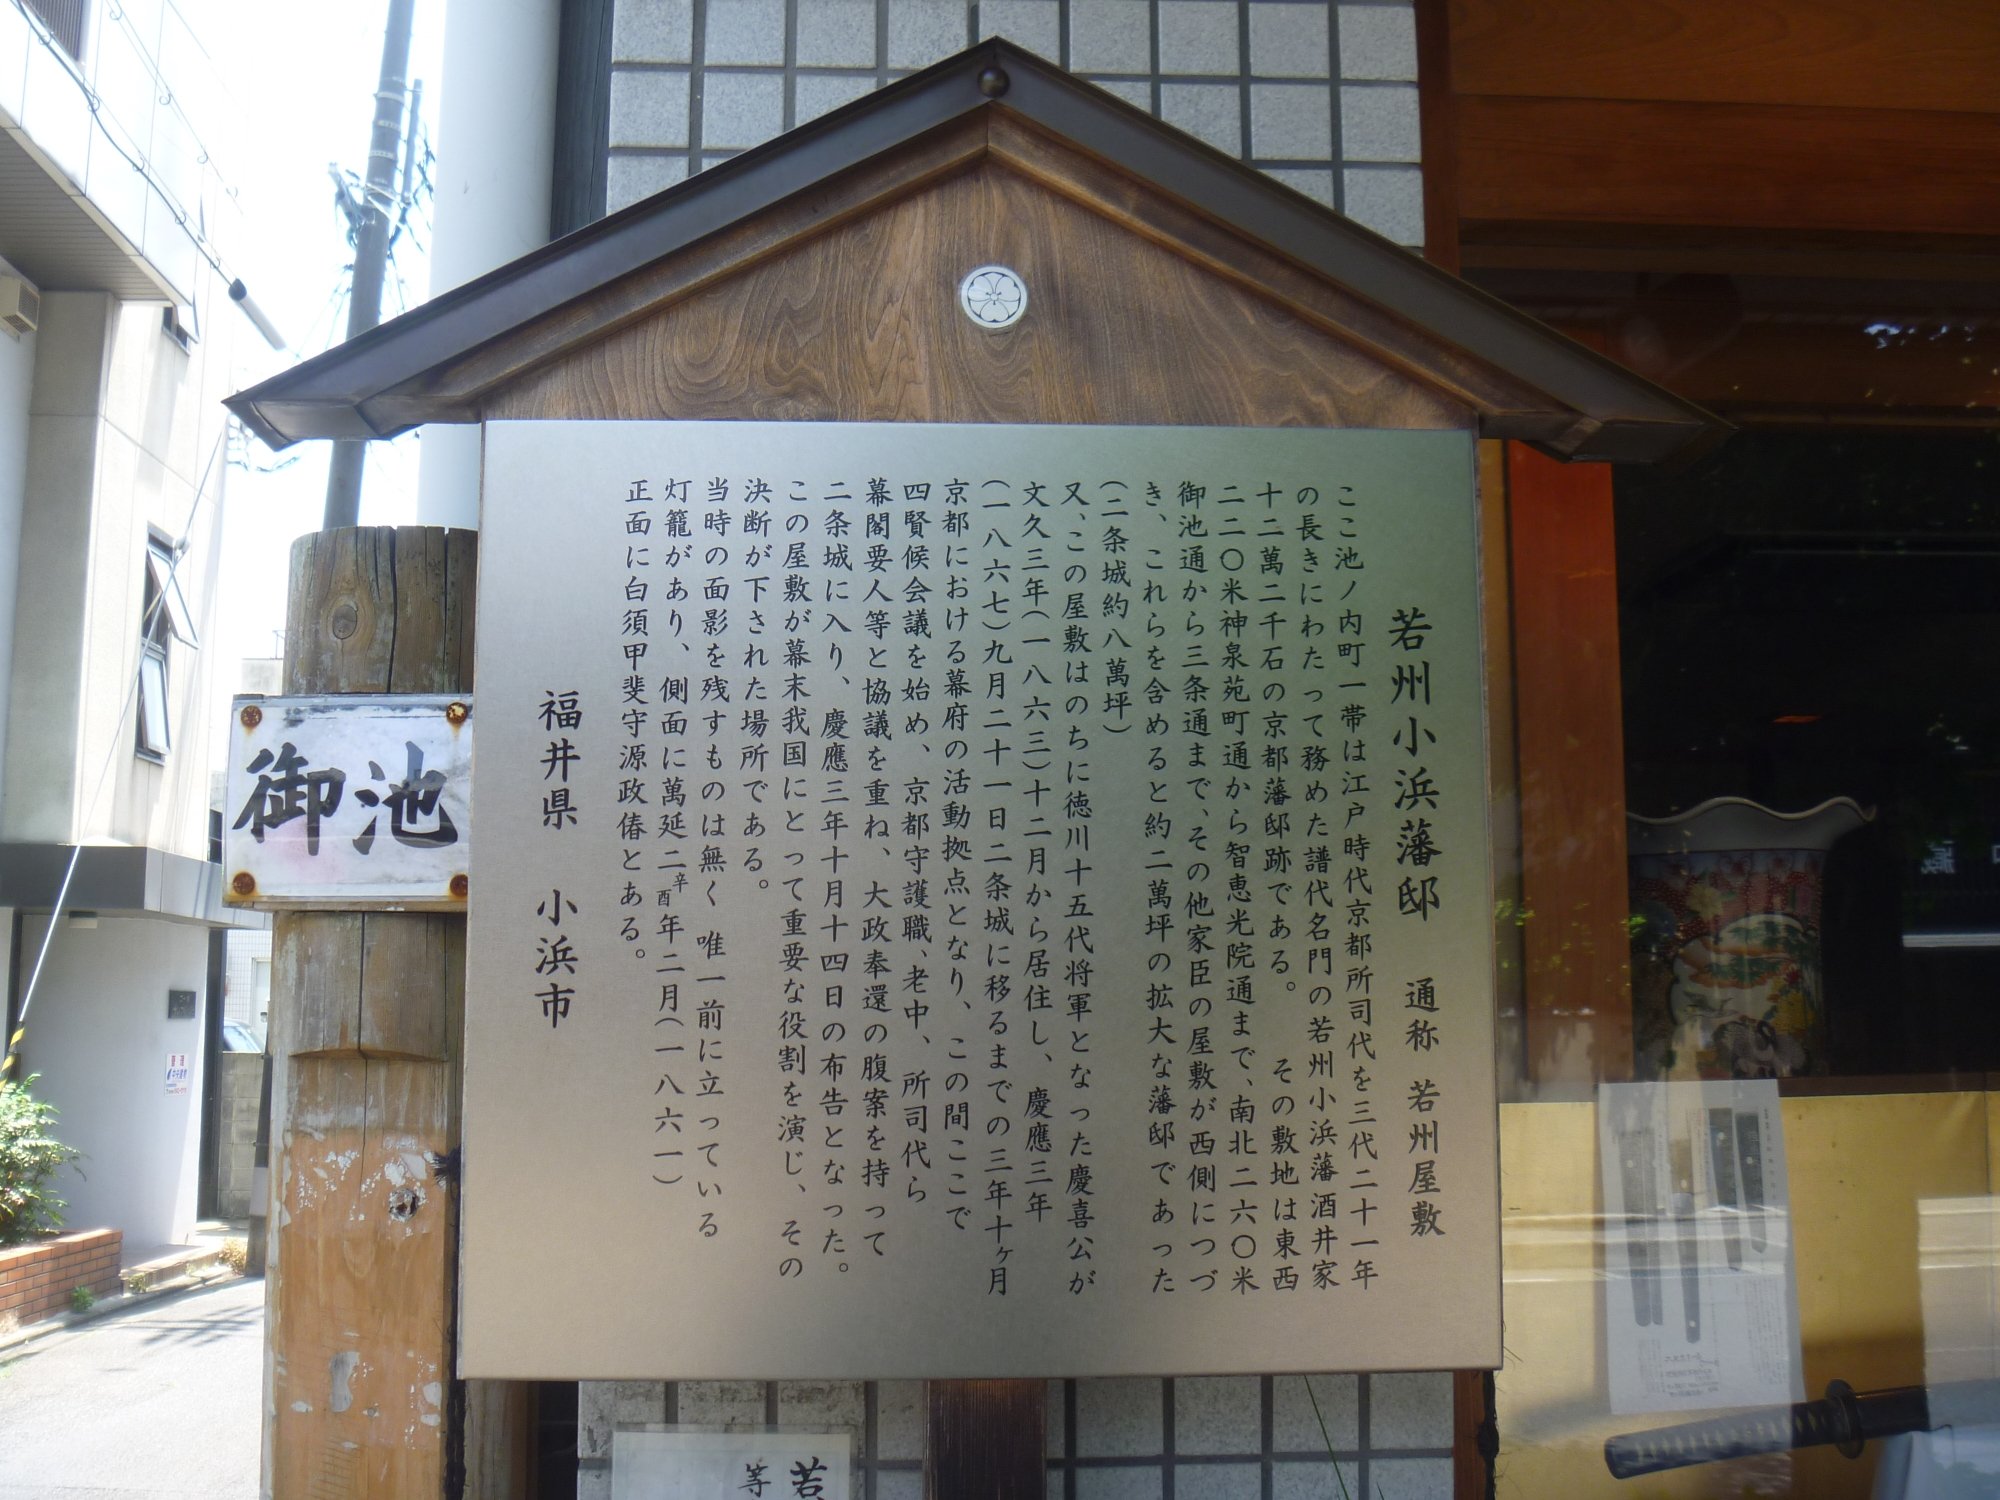 若州小浜藩邸 通称 若州屋敷
ここ池ノ内町一帯は江戸時代京都所司代を三代二十一年
の長きにわたって務めた譜代名門の若州小浜藩酒井家
十二萬二千石の京都藩邸跡である。 その敷地は東西
二二〇米神泉苑町通から智恵光院通まで、南北二六〇米
御池通から三条通まで、その他家臣の屋敷が西側につづ
き、これらを含めると約二萬坪の拡大な藩邸であった
(二条城約八萬坪)
又、この屋敷はのちに徳川十五代将軍となった慶喜公が
文久三年(一八六三)十二月から居住し、慶應三年
(一八六七)九月二十一日二条城に移るまでの三年十ヶ月
京都における幕府の活動拠点となり、この間ここで
四賢候会議を始め、京都守護職、老中、所司代ら
幕閣要人等と協議を重ね、大政奉還の腹案を持って
二条城に入り、慶應三年十月十四日の布告となった。
この屋敷が幕末我国にとって重要な役割を演じ、その
決断が下された場所である。
当時の面影を残すものは無く 唯一前に立っている
灯籠があり、側面に萬延二辛酉年二月(一八六一)
正面に白須甲斐守源政偆とある。
福井県 小浜市
御池
若
等